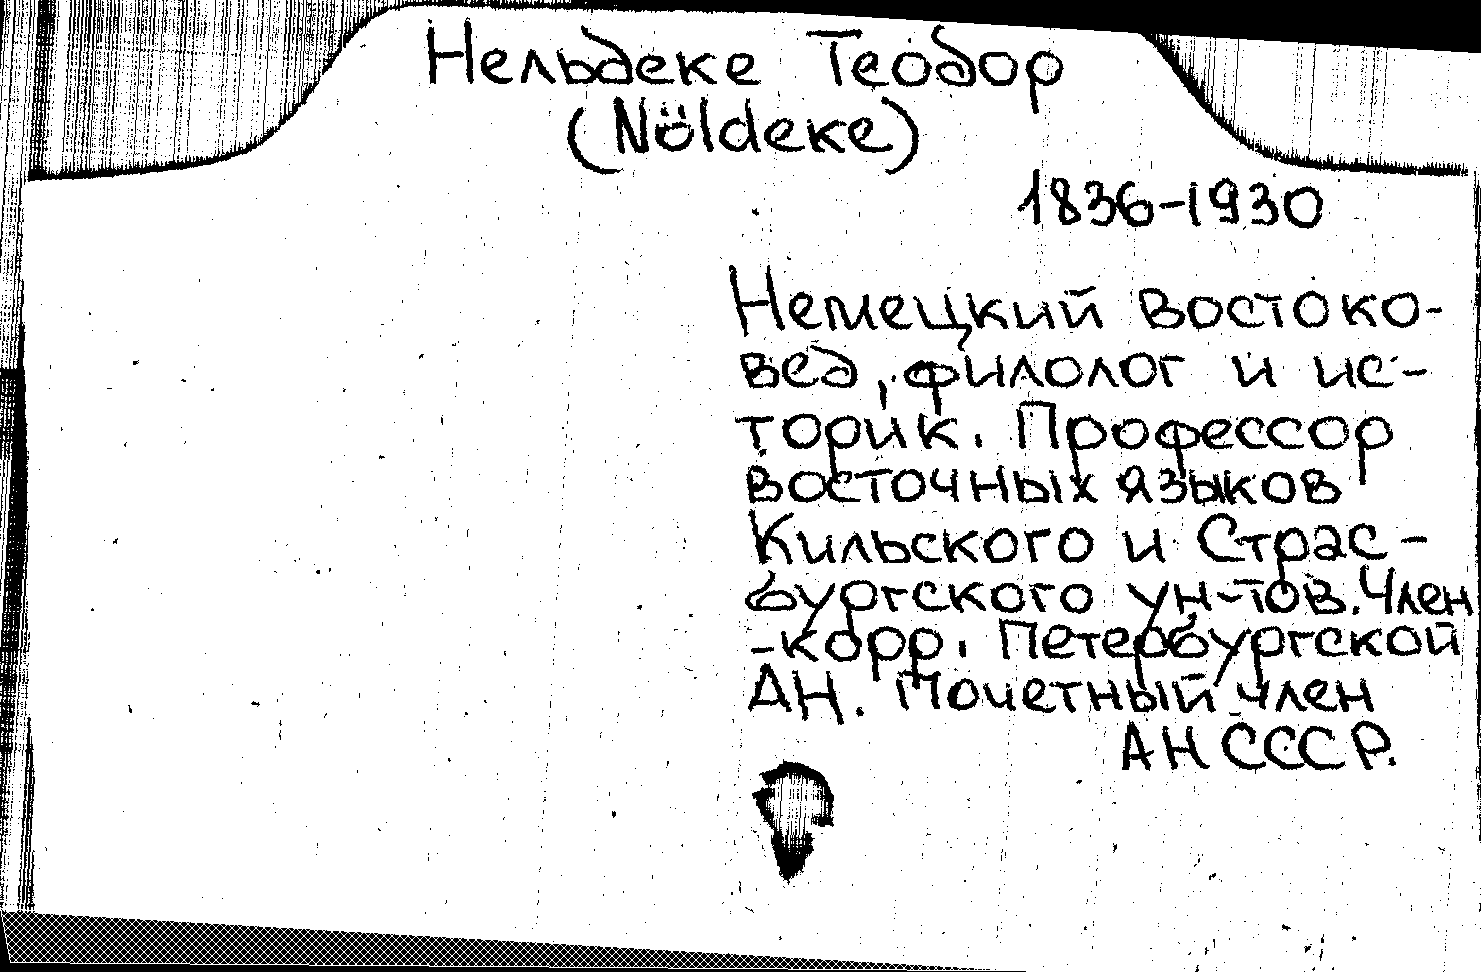 Нельдеке Теодор
(Nöldeke)
1836-1930
Немецкий востоко-
вед, филолог и ис-
торик. Профессор
восточных языков
Кильского и Страс-
бургского ун-тов. Член
-корр. Петербургской
АН. Почетный член
АН СССР.